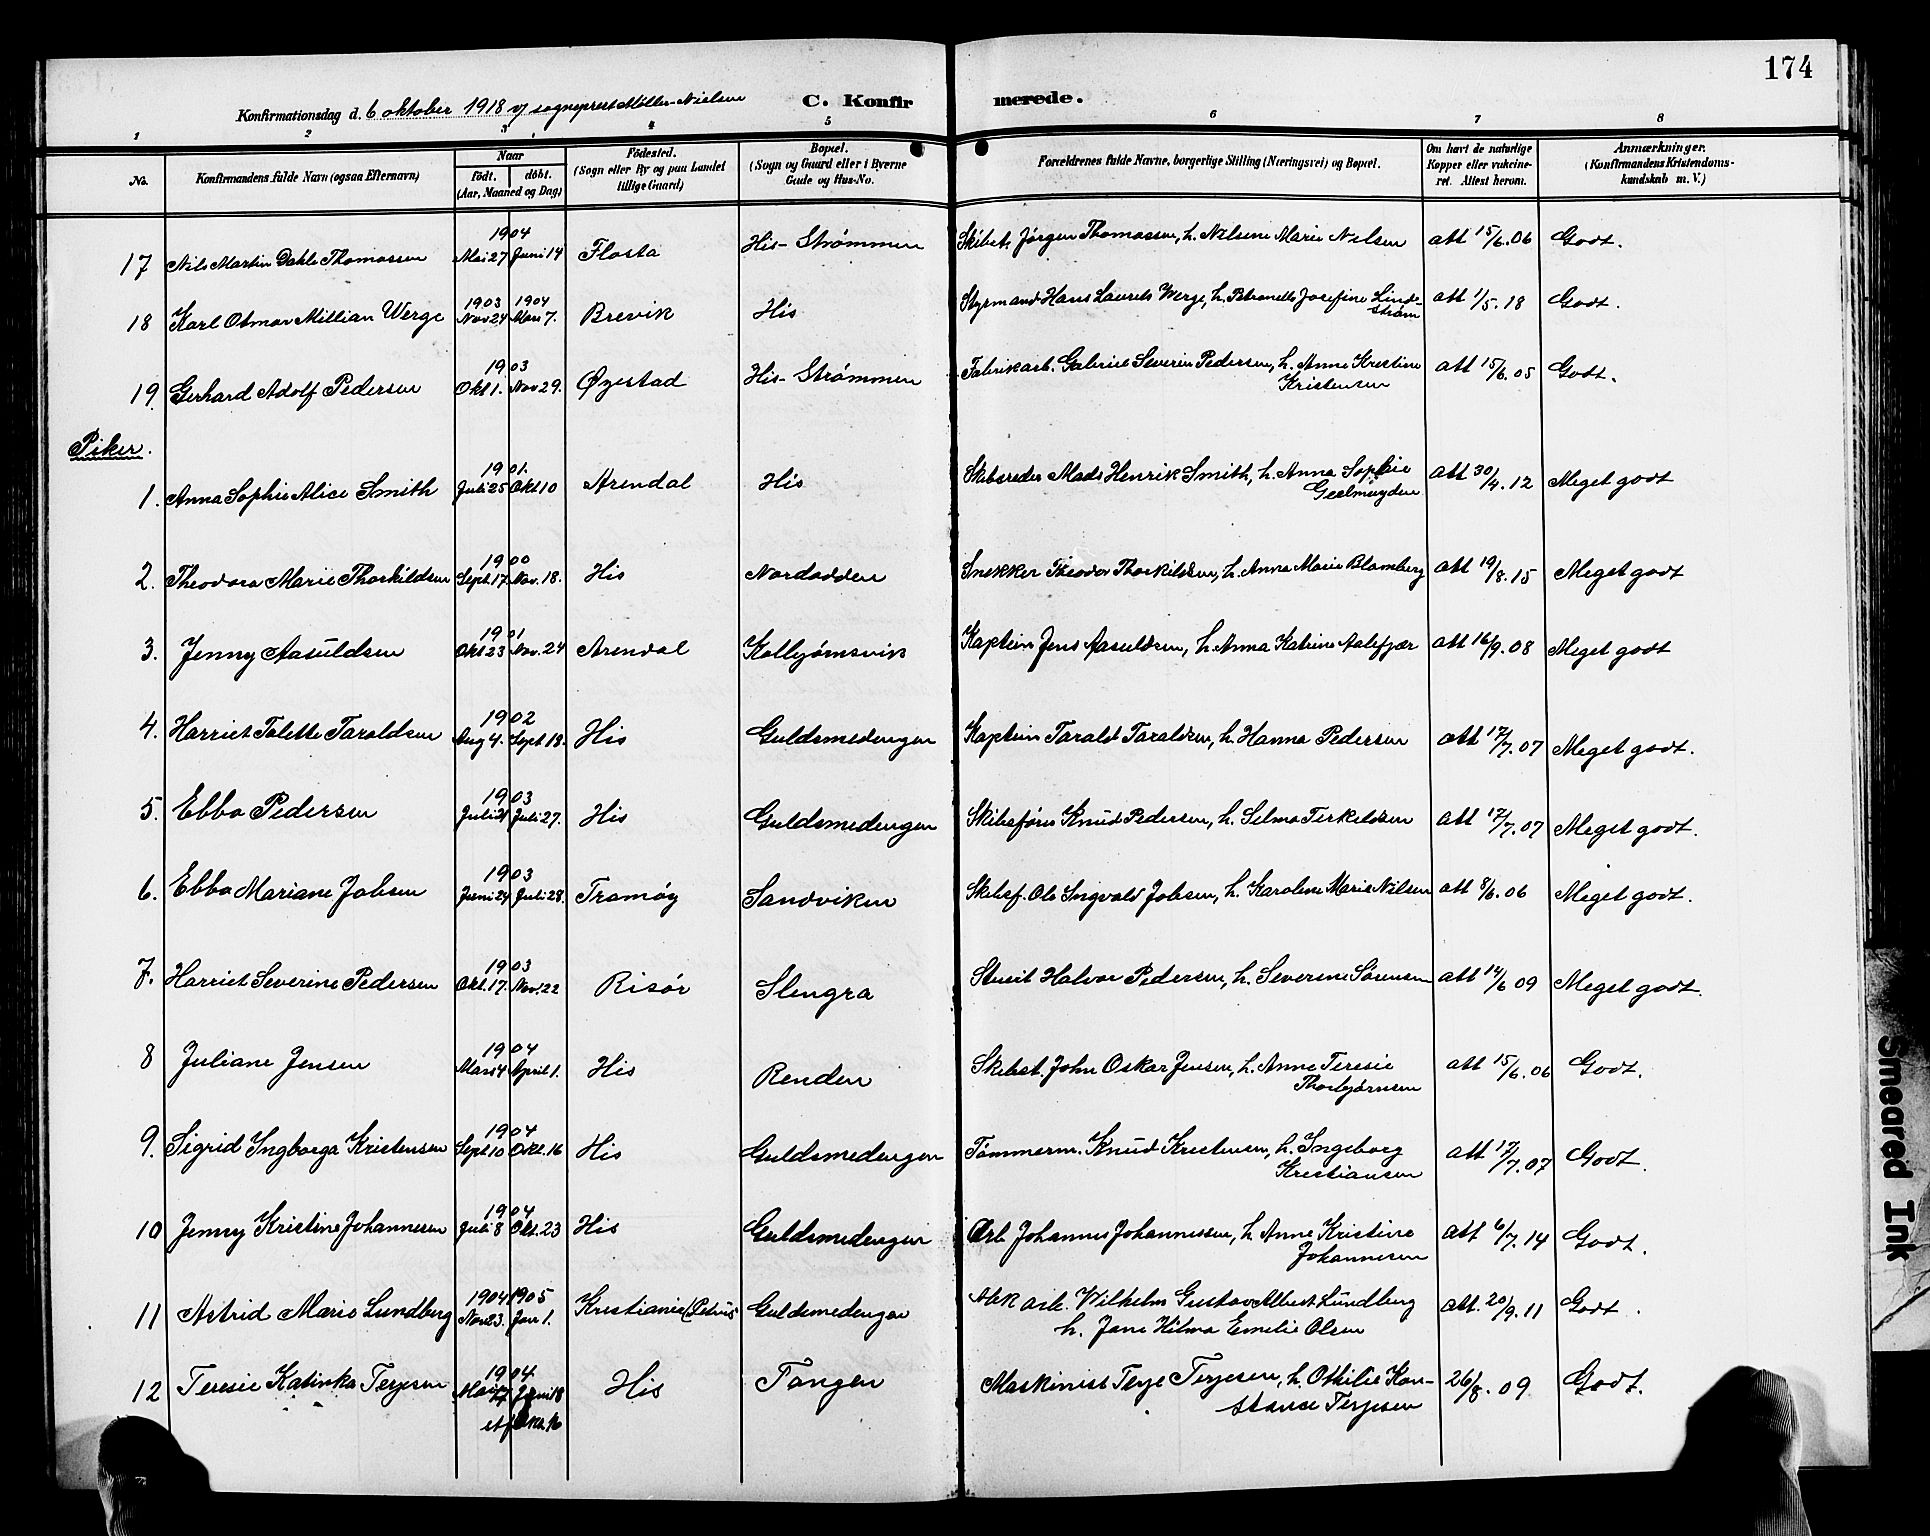 174
Konfirmationsdag d. 6 oktober 1918 v/ sogneprest Möller-Nielsen C. Konfirmerede.
1 2 3 4 5 6 7 8
No. Konfirmandens fulde Navn (ogsaa Efternavn) Naar födt. döbt. (Aar, Maaned og Dag) Födested. (Sogn eller By og paa Landet tillige Gaard) Bopæl. (Sogn og Gaard eller i Byerne Gade og Hus-No. Forældrenes fulde Navne, borgerlige Stilling (Næringsvei) og Bopæl. Om havt de naturlige Kopper eller vakcineret. Attest herom. Anmærkninger. (Konfirmandens Kristendomskundskab m. V.)
17 Nils Martin Dahle Thomassen 1904 Mai 27 Juni 14 Flosta His-Strømmen Skibst. Jørgen Thomassen, h. Nilsine Marie Nilsen att 15/6.06 Godt.
18 Karl Otmar Millian Werge 1903 Nov 24 1904 Mars 7. Brevik His Styrmand Hans Laurits Werge, h. Petronelle Josefine Lindstrøm att 1/5.18 Godt.
19. Gerhard Adolf Pedersen 1903 Okt 1. Nov 29. Øyestad His-Strømmen Fabrikarb. Gabriel Severin Pedersen, h. Anne Kristine Kristensen att 15/6.05 Godt.
Piker.
1. Anna Sophie Alice Smith 1901. Juli 25 Okt 10 Arendal His Skibsreder Mads Henrik Smith, h. Anna Sophie Geelmuyden att 30/4.12 Meget godt
2. Theodora Marie Thorkildsen 1900 Sept. 17 Nov. 18. His Nordodden Snekker Theodor Thorkildsen, h. Anna Marie Blomberg att 19/8.15 Meget godt
3. Jenny Aasuldsen 1901 Okt 23 Nov. 24 Arendal Kolbjørnsvik Kaptein Jens Aasuldsen, h. Anna Katrine Aalefjær att 16/9.08 Meget godt
4. Harriet Tolette Taraldsen 1902 Aug 4. Sept 18. His Guldsmedengen Kaptein Tarald Taraldsen, h. Hanna Pedersen att 17/7.07 Meget godt.
5. Ebba Pedersen 1903 Juli 27. His Guldsmedengen Skibsfører Knud Pedersen, h. Selma Terkeldsen att 17/7.07 Meget godt.
6. Ebba Mariane Jobsen 1903 Juni 24 Juli 28. Tromøy Sandviken Skibsf. Ole Ingvald Jobsen, h. Karoline Marie Nilsen att 8/6.06 Meget godt.
7. Harriet Severine Pedersen 1903 Okt. 17. Nov. 22 Risør Slengra Stuert Halvor Pedersen, h. Severine Sørensen att 14/6 09 Meget godt.
8 Juliane Jensen 1904 Mars 4 April 1. His Renden Skibst. John Oskar Jensen, h. Anne Teresie Thorbjørnsen att 15/6.06 Godt.
9. Sigrid Ingborga Kristensen 1904 Sept 10 Okt. 16 His Guldsmedengen Tømmerm. Knud Kristensen, h. Ingeborg Kristiansen att 17/7.07 Godt.
10 Jenny Kristine Johannesen 1904 Juli 8 Okt. 23 His Guldsmedengen Arb Johannes Johannessen, h. Anne Kristine Johannesen att 6/7.14 Godt.
11 Astrid Marie Lundberg 1904 Nov 23. 1905 Jan 1. Kristiania (Petrus) Guldsmedengen arb. Wilhelm Gustav Albert Lundberg h. Jane Hilma Emelie Olsen att. 20/9.11 Godt.
12 Teresie Katinka Terjesen 1904 Juni 18 His Tangen Maskinist Terje Terjesen, h. Othilie Konstance Terjesen 26/8.09 Godt.
Smeared Ink